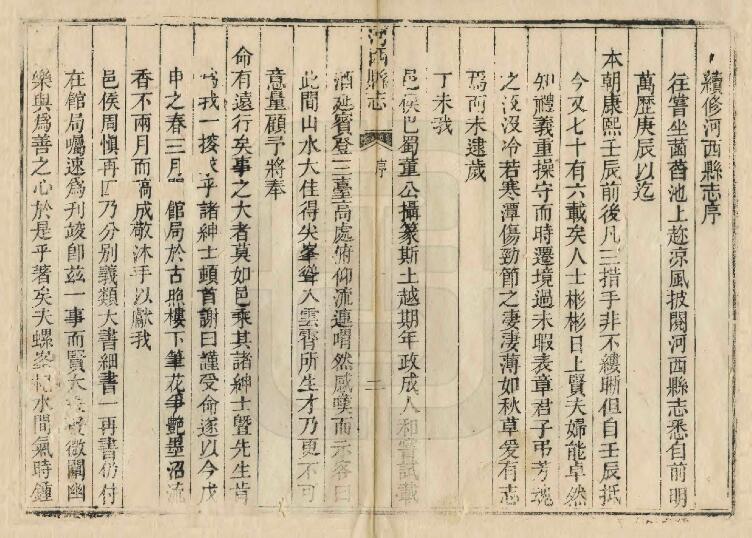 續修河西縣志序
往嘗坐菡萏池上趂凉風披閱河西縣志悉自前明
萬歷庚辰以迄
本朝康熙壬辰前後凡三措手非不縷晰但自壬辰抵
今又七十有六載矣人士彬彬日上賢夫婦能卓然
知禮義重操守而時遷境過未暇表章君子弔芳魂
之沒沒冷若寒潭傷勁節之凄凄薄如秋草爰有志
焉而未逮歲
丁未我
河西縣志
序
二
邑侯巴蜀董公攝篆斯土越期年政成人和嘗試載
酒延賓登三臺高處俯仰流連喟然感嘆而示客曰
此間山水大佳得尖峯聳入雲霄所生才乃更不可
意量顧予將奉
命有遠行矣事之大者莫如邑乘其諸紳士暨先生肯
爲我一搜求乎諸紳士頓首謝曰謹受命遂以今戊
申之春三月 館局於古照樓下筆花爭艷墨沼流
香不兩月而稿成敬沐手以獻我
邑侯周愼再四乃分别義類大書細書一再書仍付
在館局囑速爲刋竣卽兹一事而賢 微闡幽
樂與爲善之心於是乎著矣夫螺峯 水間氣時鍾